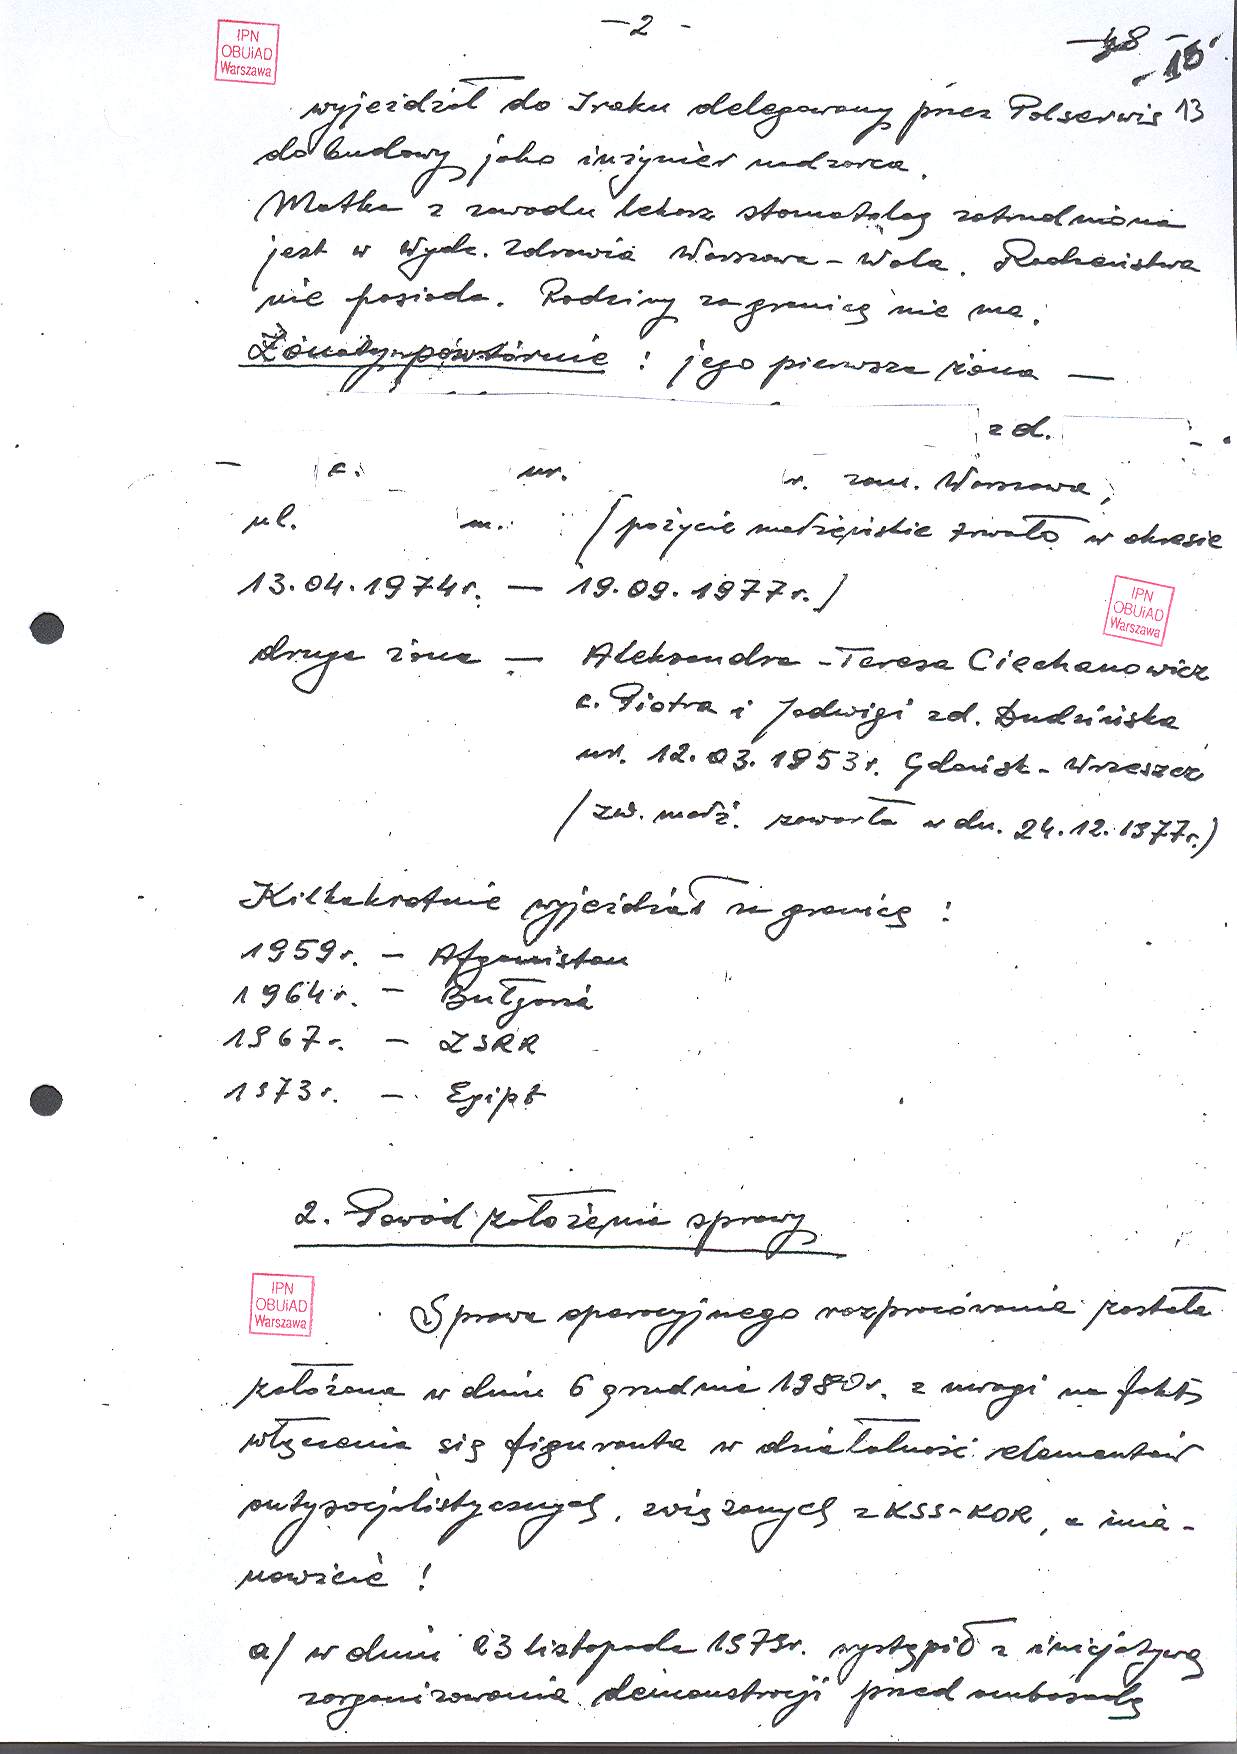 — 2 -
IPN
OBUiAD
Warszawa
wyjeżdżał do Iraku delegowany przez Polserwis 13
do budowy jako inżynier nadzorca.
Matka z zawodu lekarz stomatolog zatrudniona
jest w Wydz. Zdrowia Warszawa - Wola. Rodzeństwa
nie posiada. Rodziny za granicą nie ma.
Żonaty powtórnie : jego pierwsza żona —
z d.
— c. ur. r. zam. Warszawa,
ul. m. / pożycie małżeńskie trwało w okresie
13.04.1974r. — 19.09.1977r./
IPN
OBUiAD
Warszawa
druga żona — Aleksandra - Teresa Ciechanowicz
c. Piotra i Jadwigi zd. Dudzińska
ur. 12.03.1953r. Gdańsk - Wrzeszcz
/ zw. małż. zawarła w dn. 24.12.1977r./
Kilkakrotnie wyjeżdżał za granicę :
1959r. — Afganistan
1964r. — Bułgaria
1967r. — ZSRR
1973r. — Egipt
2. Powód założenia sprawy
IPN
OBUiAD
Warszawa
Sprawa operacyjnego rozpracowania została
założona w dniu 6 grudnia 1980r. z uwagi na fakt
włączenia się figuranta w działalność elementów
antysocjalistycznych, związanych z KSS-KOR, a mia-
nowicie :
a/ w dniu 23 listopada 1979r. wystąpił z inicjatywą
zorganizowania demonstracji przed ambasadą